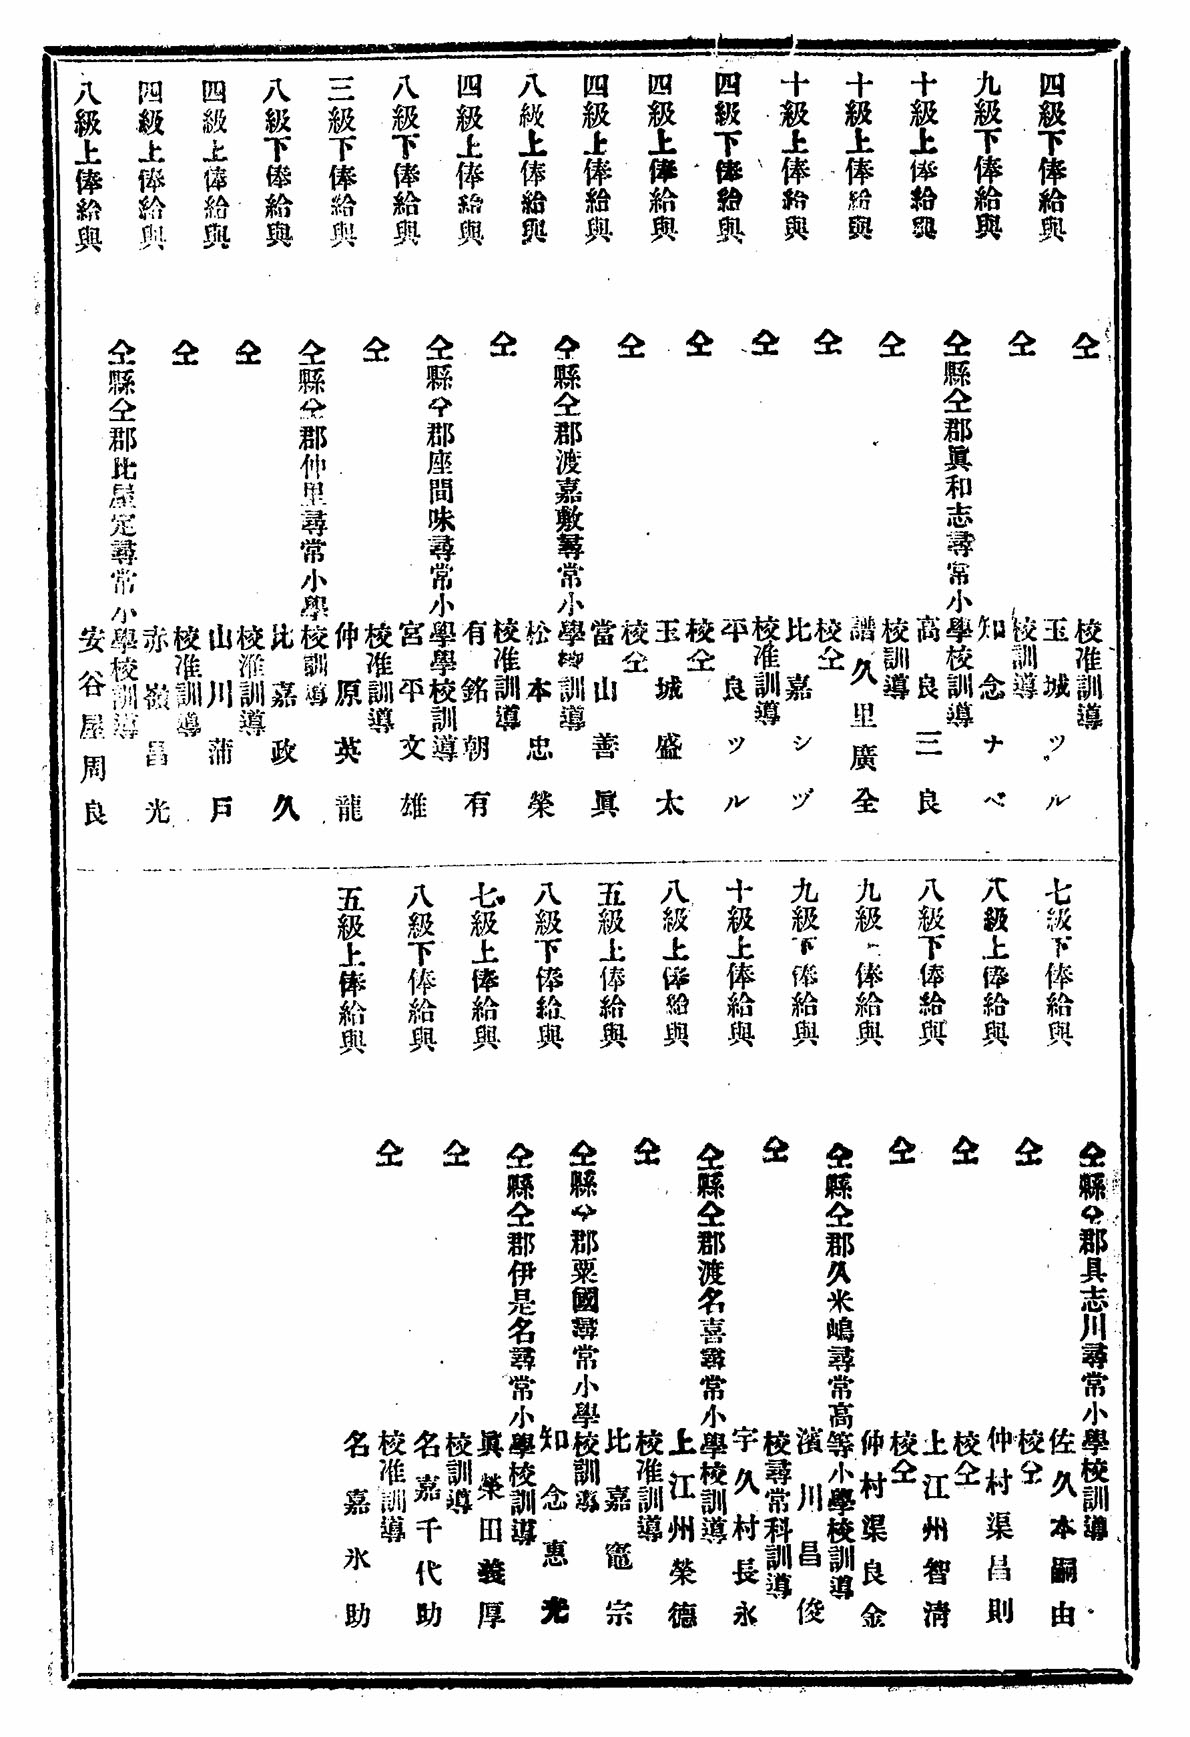 仝校准訓導
四級下俸給與 玉城ツル
仝校訓導
九級下俸給與 知念ナベ
仝縣仝郡眞和志尋常小學校訓導
十級上俸給與 高良三良
仝校訓導
十級上俸給與 譜久里廣全
仝校仝
十級上俸給與 比嘉シヅ
仝校准訓導
四級下俸給與 平良ツル
仝校仝
四級上俸給與 玉城盛太
仝校仝
四級上俸給與 當山善眞
仝縣仝郡渡嘉敷尋常小學校訓導
八級上俸給與 松本忠榮
仝校准訓導
四級上俸給與 有銘朝有
仝縣仝郡座間味尋常小學學校訓導
八級下俸給與 宮平文雄
仝校准訓導
三級下俸給與 仲原英龍
仝縣仝郡仲里尋常小學校訓導
八級下俸給與 比嘉政久
仝校准訓導
四級上俸給與 山川蒲戸
仝校准訓導
四級上俸給與 赤嶺昌光
仝縣仝郡比屋定尋常小學校訓導
八級上俸給與 安谷屋周良
仝縣仝郡具志川尋常小學校訓導
七級下俸給與 佐久本嗣由
仝校仝
八級上俸給與 仲村渠昌則
仝校仝
八級下俸給與 上江州智淸
仝校仝
九級上俸給與 仲村渠良金
仝縣仝郡久米嶋尋常高等小學校訓導
九級下俸給與 濱川昌俊
仝校尋常科訓導
十級上俸給與 宇久村長永
仝縣仝郡渡名喜尋常小學校訓導
八級上俸給與 上江州榮德
仝校准訓導
五級上俸給與 比嘉竈宗
仝縣仝郡粟國尋常小學校訓導
八級下俸給與 知念惠光
仝縣仝郡伊是名尋常小學校訓導
七級上俸給與 眞榮田義厚
仝校訓導
八級下俸給與 名嘉千代助
仝校准訓導
五級上俸給與 名嘉氷助